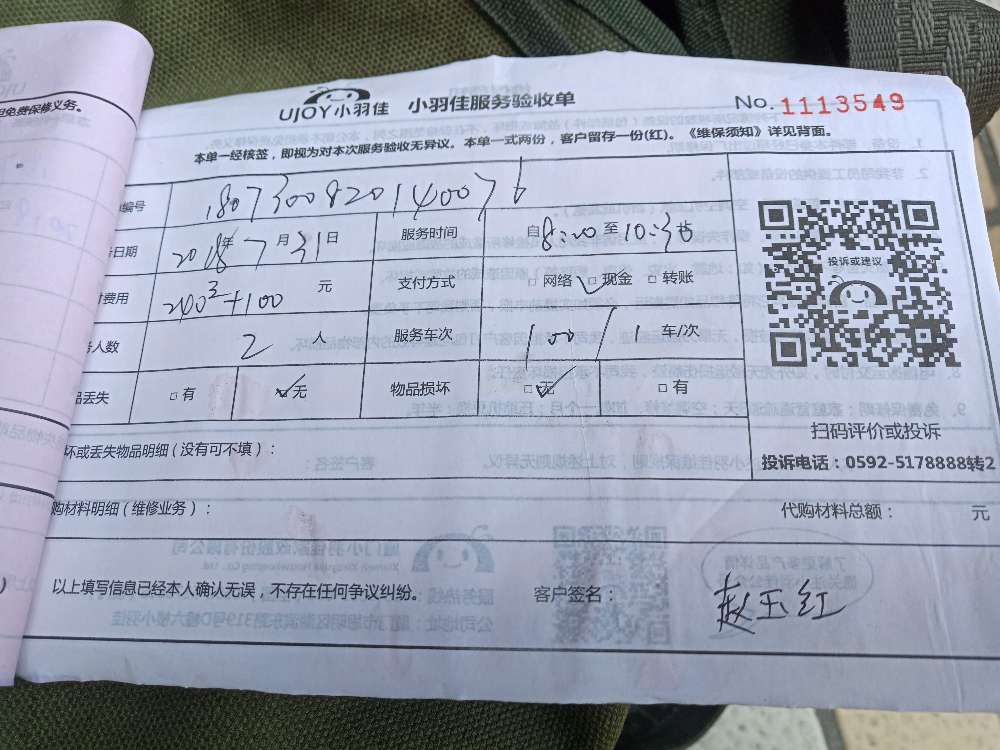 但免费保修义务。
UJOY小羽佳 小羽佳服务验收单
No. 1113549
本单一经核签，即视为对本次服务验收无异议。本单一式两份，客户留存一份(红)。《维保须知》详见背面。
编号 1807300820140076
日期 2018年7月31日 服务时间 自8:20至10:35
费用 200²+100 元 支付方式 □网络 □现金 □转账
人数 2 人 服务车次 1车/次
品丢失 □有 无 物品损坏 □无 □有
投诉或建议
扫码评价或投诉
坏或丢失物品明细（没有可不填）：
投诉电话：0592-5178888转2
购材料明细（维修业务）： 代购材料总额： 元
以上填写信息已经本人确认无误，不存在任何争议纠纷。 客户签名： 赵玉红